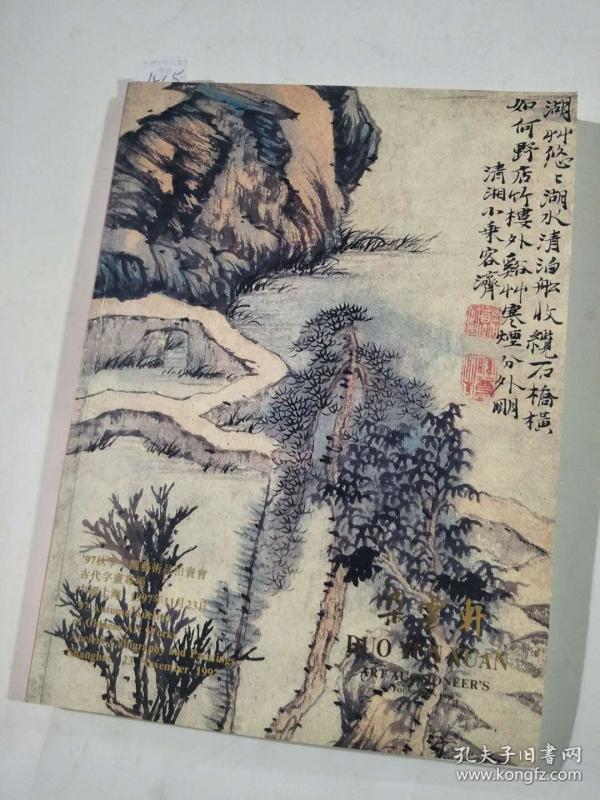 湖艸悠々湖水清泊舩收纜石橋橫
如何野店竹樓外谿艸寒煙分外明
清湘小乘客濟
'97秋季中國藝術品拍賣會
古代字畫專場
1997年11月23日
Calligraphy and Paintings
Shanghai 23 November, 1997
朵雲軒
DUO YUN XUAN
ART AUCTIONEER'S
孔夫子旧书网
www.kongfz.com